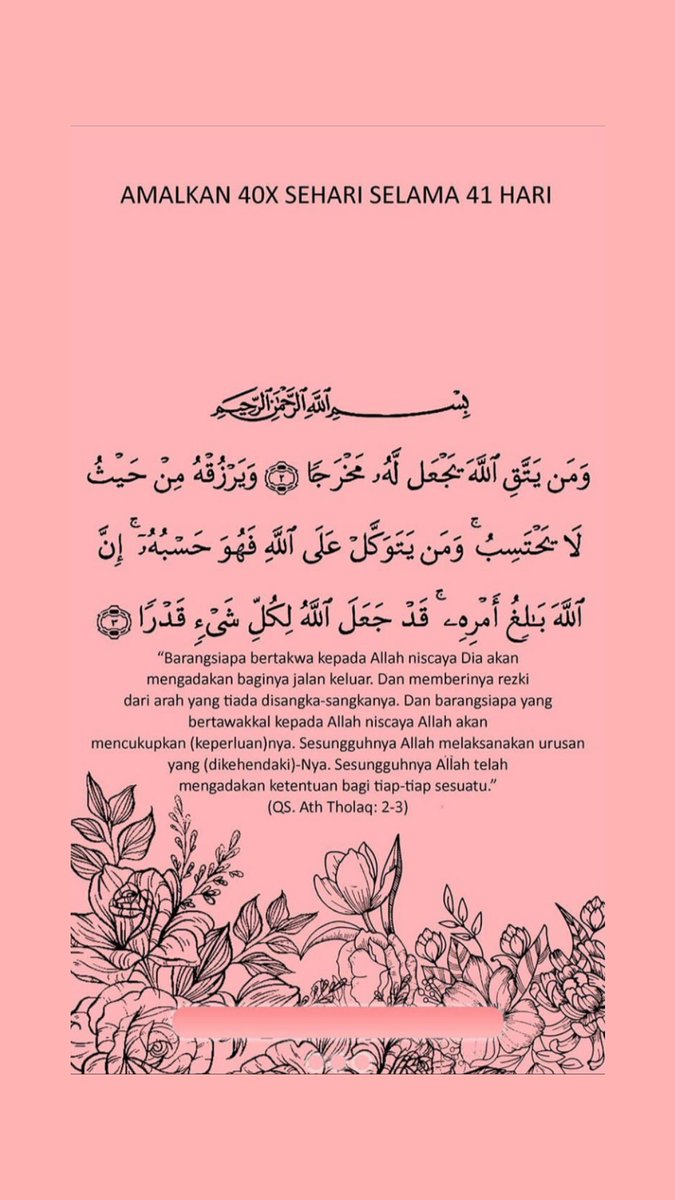 AMALKAN 40X SEHARI SELAMA 41 HARI
بِسْمِ ٱللَّهِ ٱلرَّحْمَٰنِ ٱلرَّحِيمِ
وَمَن يَتَّقِ ٱللَّهَ يَجْعَل لَّهُۥ مَخْرَجًا ۝٢ وَيَرْزُقْهُ مِنْ حَيْثُ
لَا يَحْتَسِبُ ۚ وَمَن يَتَوَكَّلْ عَلَى ٱللَّهِ فَهُوَ حَسْبُهُۥٓ ۚ إِنَّ
ٱللَّهَ بَـٰلِغُ أَمْرِهِۦ ۚ قَدْ جَعَلَ ٱللَّهُ لِكُلِّ شَىْءٍ قَدْرًا ۝٣
“Barangsiapa bertakwa kepada Allah niscaya Dia akan
mengadakan baginya jalan keluar. Dan memberinya rezki
dari arah yang tiada disangka-sangkanya. Dan barangsiapa yang
bertawakkal kepada Allah niscaya Allah akan
mencukupkan (keperluan)nya. Sesungguhnya Allah melaksanakan urusan
yang (dikehendaki)-Nya. Sesungguhnya Allah telah
mengadakan ketentuan bagi tiap-tiap sesuatu.”
(QS. Ath Tholaq: 2-3)